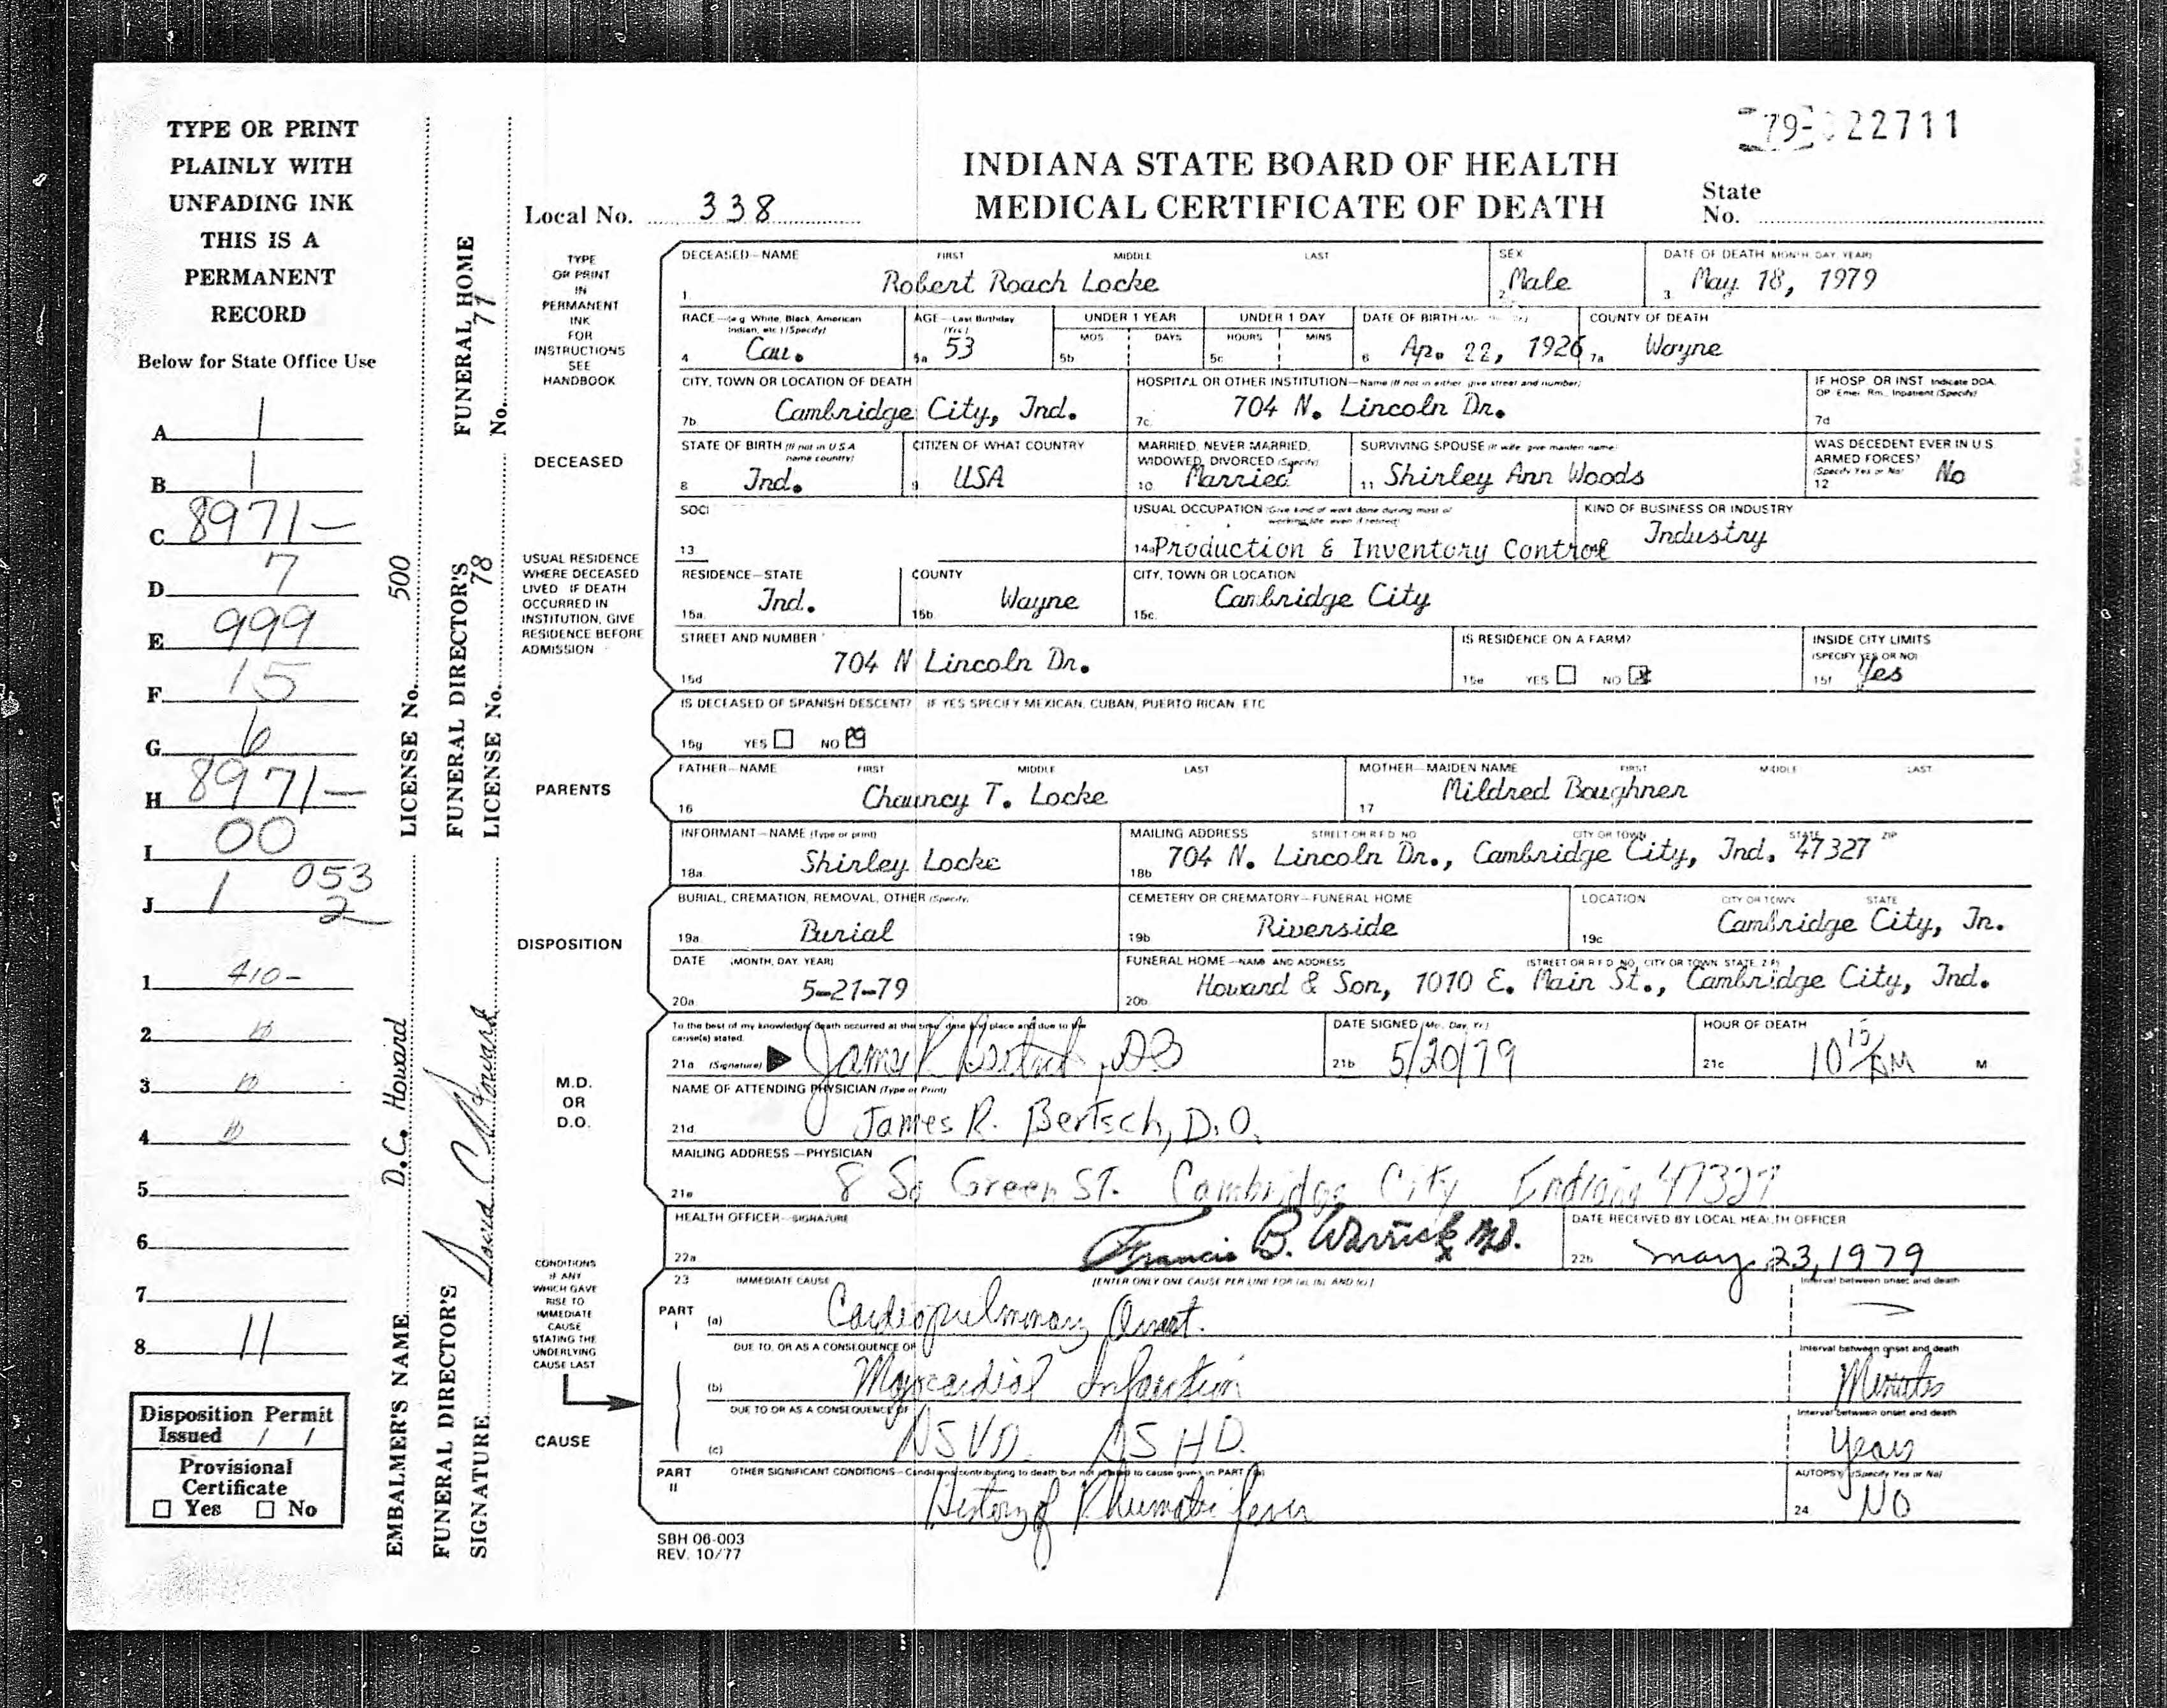 79-022711
INDIANA STATE BOARD OF HEALTH
MEDICAL CERTIFICATE OF DEATH
State
No.
Local No. 338
TYPE OR PRINT
PLAINLY WITH
UNFADING INK
THIS IS A
PERMANENT
RECORD
Below for State Office Use
A 1
B 1
C 8971-
D 7
E 999
F 15
G 6
H 8971-
I 00
J 1 053
2
1 410-
2
3
4
5
6
7
8 11
Disposition Permit
Issued / /
Provisional
Certificate
Yes No
EMBALMER'S NAME D.C. Howard LICENSE No. 500
FUNERAL DIRECTOR'S
SIGNATURE David C Howard
FUNERAL DIRECTOR'S
LICENSE No. 78
FUNERAL HOME
No. 77
TYPE
OR PRINT
IN
PERMANENT
INK
FOR
INSTRUCTIONS
SEE
HANDBOOK
DECEASED
USUAL RESIDENCE
WHERE DECEASED
LIVED IF DEATH
OCCURRED IN
INSTITUTION, GIVE
RESIDENCE BEFORE
ADMISSION
PARENTS
DISPOSITION
M.D.
OR
D.O.
CONDITIONS
IF ANY
WHICH GAVE
RISE TO
IMMEDIATE
CAUSE
STATING THE
UNDERLYING
CAUSE LAST
CAUSE
DECEASED—NAME FIRST MIDDLE LAST
1 Robert Roach Locke
SEX
2 Male
DATE OF DEATH MONTH DAY YEAR
3 May 18, 1979
RACE—(e.g. White, Black, American
Indian, etc.) (Specify)
4 Cau.
AGE—Last Birthday
(Yrs.)
5a 53
UNDER 1 YEAR
MOS DAYS
5b
UNDER 1 DAY
HOURS MINS
5c
DATE OF BIRTH
6 Ap. 22, 1926
COUNTY OF DEATH
7a Wayne
CITY, TOWN OR LOCATION OF DEATH
7b Cambridge City, Ind.
HOSPITAL OR OTHER INSTITUTION—Name (If not in either, give street and number)
7c 704 N. Lincoln Dr.
IF HOSP. OR INST. Indicate DOA,
OP Emer. Rm., Inpatient (Specify)
7d
STATE OF BIRTH (If not in U.S.A.
name country)
8 Ind.
CITIZEN OF WHAT COUNTRY
9 USA
MARRIED, NEVER MARRIED,
WIDOWED, DIVORCED (Specify)
10 Married
SURVIVING SPOUSE (If wife, give maiden name)
11 Shirley Ann Woods
WAS DECEDENT EVER IN U.S.
ARMED FORCES?
(Specify Yes or No)
12 No
SOCI
13
USUAL OCCUPATION (Give kind of work done during most of
working life, even if retired)
14a Production & Inventory Control
KIND OF BUSINESS OR INDUSTRY
Industry
RESIDENCE—STATE
15a Ind.
COUNTY
15b Wayne
CITY, TOWN OR LOCATION
15c Cambridge City
STREET AND NUMBER
15d 704 N Lincoln Dr.
IS RESIDENCE ON A FARM?
15e YES NO X
INSIDE CITY LIMITS
(SPECIFY YES OR NO)
15f Yes
IS DECEASED OF SPANISH DESCENT? IF YES SPECIFY MEXICAN, CUBAN, PUERTO RICAN, ETC
15g YES NO
FATHER—NAME FIRST MIDDLE LAST
16 Chauncy T. Locke
MOTHER—MAIDEN NAME FIRST MIDDLE LAST
17 Mildred Boughner
INFORMANT—NAME (Type or print)
18a Shirley Locke
MAILING ADDRESS STREET OR R.F.D. NO. CITY OR TOWN STATE ZIP
18b 704 N. Lincoln Dr., Cambridge City, Ind. 47327
BURIAL, CREMATION, REMOVAL, OTHER (Specify)
19a Burial
CEMETERY OR CREMATORY—FUNERAL HOME
19b Riverside
LOCATION CITY OR TOWN STATE
19c Cambridge City, In.
DATE (MONTH, DAY, YEAR)
20a 5-21-79
FUNERAL HOME—NAME AND ADDRESS (STREET OR R.F.D. NO., CITY OR TOWN, STATE, ZIP)
20b Howard & Son, 1010 E. Main St., Cambridge City, Ind.
To the best of my knowledge, death occurred at the time, date and place and due to the
cause(s) stated.
21a (Signature) James R Bertsch, DO
DATE SIGNED (Mo., Day, Yr.)
21b 5/20/79
HOUR OF DEATH
21c 10 15 AM M
NAME OF ATTENDING PHYSICIAN (Type or Print)
21d James R. Bertsch, D.O.
MAILING ADDRESS—PHYSICIAN
21e 8 So Green ST. Cambridge City Indiana 47327
HEALTH OFFICER—SIGNATURE
22a Francis B. Warrick MD.
DATE RECEIVED BY LOCAL HEALTH OFFICER
22b May 23, 1979
23 IMMEDIATE CAUSE [ENTER ONLY ONE CAUSE PER LINE FOR (a), (b), AND (c)]
Interval between onset and death
PART
I (a) Cardiopulmonary Arrest. —
DUE TO, OR AS A CONSEQUENCE OF
Interval between onset and death
(b) Myocardial Infarction Minutes
DUE TO OR AS A CONSEQUENCE OF
Interval between onset and death
(c) ASVD ASHD. Years
PART
II
OTHER SIGNIFICANT CONDITIONS—Conditions contributing to death but not related to cause given in PART I (a)
History of Rhumatic fever
AUTOPSY (Specify Yes or No)
24 NO
SBH 06-003
REV. 10/77